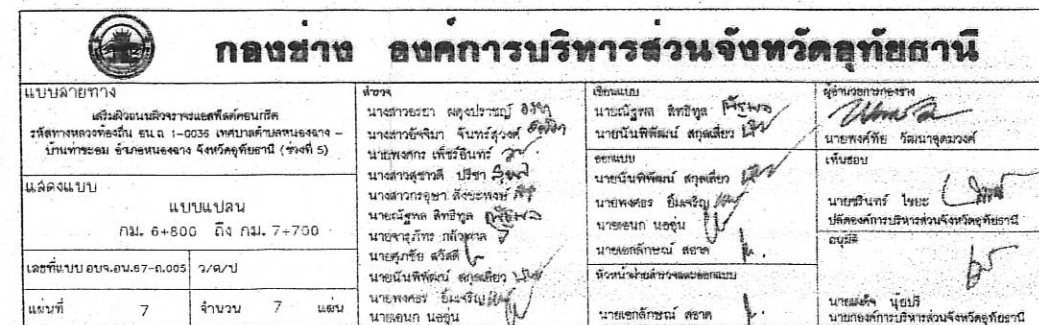 กองช่าง องค์การบริหารส่วนจังหวัดอุทัยธานี
แบบลายทาง
เสริมผิวถนนผิวจราจรแอสฟัลต์คอนกรีต
รหัสทางหลวงท้องถิ่น อน.ถ 1-0036 เทศบาลตำบลหนองฉาง -
บ้านท่าชะอม อำเภอหนองฉาง จังหวัดอุทัยธานี (ช่วงที่ 5)
แสดงแบบ
แบบแปลน
กม. 6+800 ถึง กม. 7+700
เลขที่แบบ อบจ.อน.67-ถ.005 ว/ด/ป
แผ่นที่ 7 จำนวน 7 แผ่น
สำรวจ
นางสาวอรยา ผดุงปราชญ์
นางสาวอัจจิมา จันทร์สุวงศ์
นายพงศกร เพ็ชร์อินทร์
นางสาวสุชาวดี ปรีชา
นางสาวกรอุษา
นายณัฐพล สิทธิทูล
นายจารุภัทร
นายศุภชัย สวัสดี
นายนันพิพัฒน์ สกุลเสี่ยว
นายพงศธร ยิ้มเจริญ
นายเอนก นออุ่น
เขียนแบบ
นายณัฐพล สิทธิทูล
นายนันพิพัฒน์ สกุลเสี่ยว
ออกแบบ
นายนันพิพัฒน์ สกุลเสี่ยว
นายพงศธร ยิ้มเจริญ
นายเอนก นออุ่น
นายเอกลักษณ์ สอาด
หัวหน้าฝ่ายสำรวจและออกแบบ
นายเอกลักษณ์ สอาด
ผู้อำนวยการกองช่าง
นายพงศ์ทัย วัฒนาอุดมวงศ์
เห็นชอบ
นายชรินทร์ ไชยะ
ปลัดองค์การบริหารส่วนจังหวัดอุทัยธานี
อนุมัติ
นายเผด็จ นุ้ยปรี
นายกองค์การบริหารส่วนจังหวัดอุทัยธานี